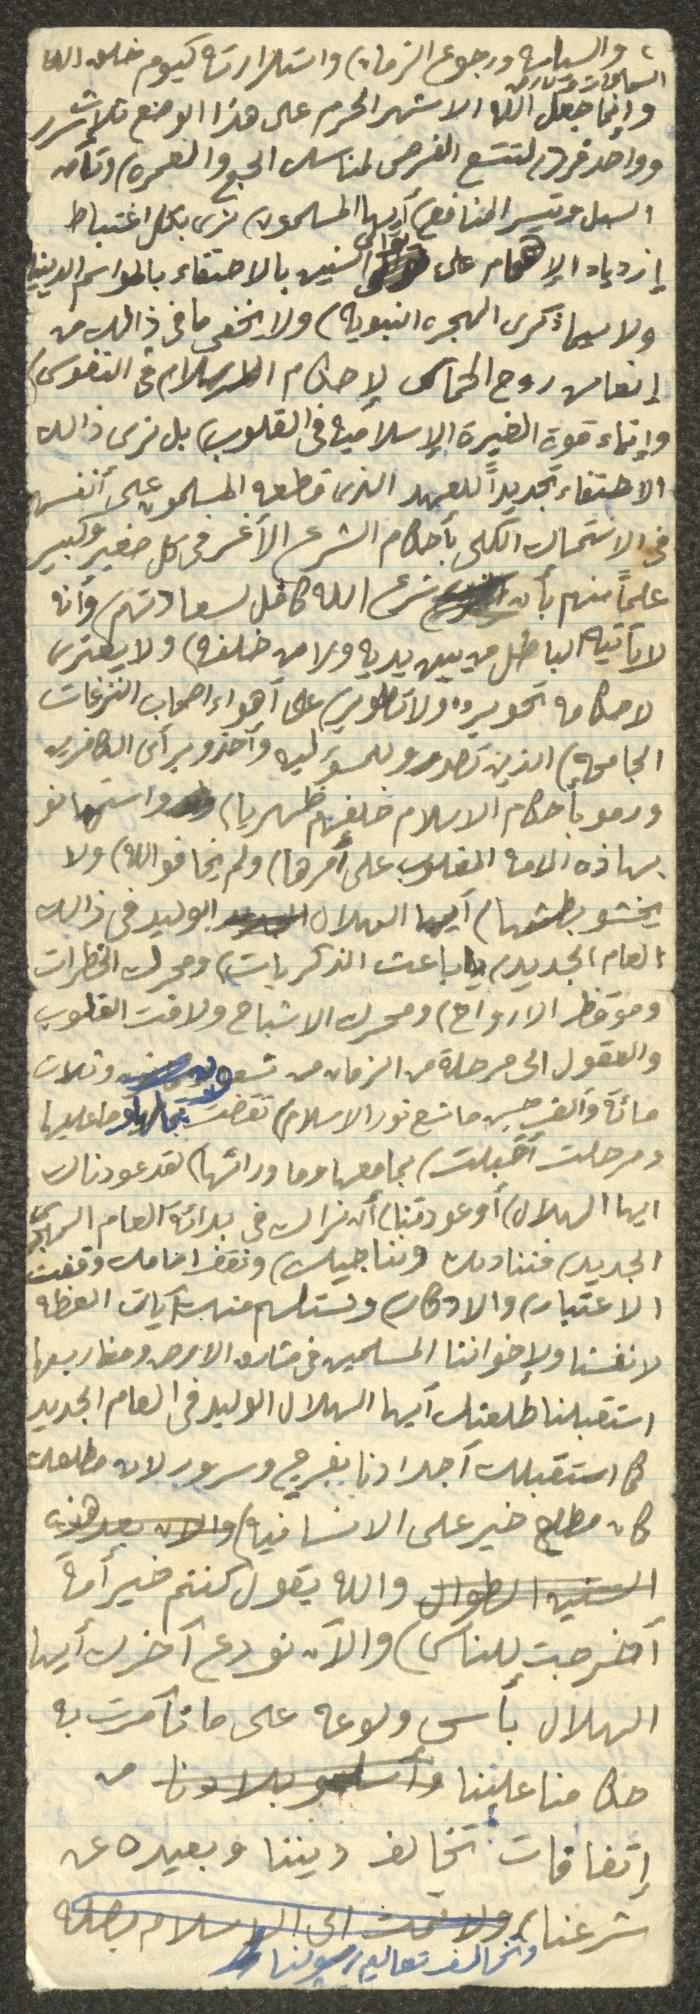 والسيارة ورجوع الزمان) واستدارته كيوم خلق الله
السماوات
وإنما جعل الله الاشهر الحرم على هذا الوضع ثلاث سرد
وواحد فرد) لتتسع الفرص لمناسك الحج والعمرة) وتأمن
السبل وتيسر المنافع) أيها المسلمون) نرى بكل اغتباط
إزدياد الإهتمام على توالي السنين بالاحتفاء بالمواسم الدينية
ولا سيما ذكرى الهجره النبوية) ولا يخفى ما في ذالك من
إنعاش روح الحماس لإحكام الإسلام في النفوس)
وإنماء قوة الغيرة الإسلامية في القلوب) بل نرى ذالك
الاحتفاء تجديداً للعهد الذى قطعه المسلمون على أنفسهم
في الاستمساك الكلى بأحكام الشرع الأغر في كل صغير وكبير
علماً منهم بأن شرع الله كافل لسعادتهم) وأنه
لا يأتيه الباطل من بين يديه ولا من خلفه) ولا يعترى
لاحكامه تحوير ولا تطوير) على أهواء اصحاب النزعات
الجامحة) الذين تصدرو للمسؤليه وأخذو برأى الكافرين
ورمو بأحكام الاسلام خلفهم ظهريا) واستهانو
بهاذه الامه المغلوب على أمرها) ولم يخافو الله) ولا
يخشو بطشها) أيها الهلال الوليد في ذالك
العام الجديد) يا باعث الذكريات) ومحرك الخطرات
وموقظ الارواح) ومحرك الاشباح ولافت القلوب
والعقول الى مرحلة من الزمان من تسعه وثلاث
مائة وألف حين ما شع نور الاسلام) تقضت بمالها وما عليها
ومرحلت أقبلت) بمجامعها وما ورائها) لقد عودناك
ايها الهلال) أو عودتنا) أن نراك في بدائة العام الهجري
الجديد) فنناديك ونناجيك) ونقف امامك وقفت
الاعتبار) والادكار) ونستلهم منك آيات العظه
لانفسنا ولإخواننا المسلمين في مشارق الارض ومغاربها
استقبلنا طلعتك أيها الهلال الوليد في العام الجديد
كما استقبلك آجدادنا بفرح وسرور لان مطلعك
كان مطلع خير على الانسانية) والان بعد هذه
السنين الطوال والله يقول كنتم خير أمة
أخرجت للناس) والآن نودع آخرك أيها
الهلال بأسى ولوعه على ما تآمرت به
حكامنا علينا وأسلمو بلادنا من
إتفاقات تخالف ديننا وبعيده عن
شرعنا) ولا تمت الى الاسلام بصله
وتخالف تعاليم رسولنا